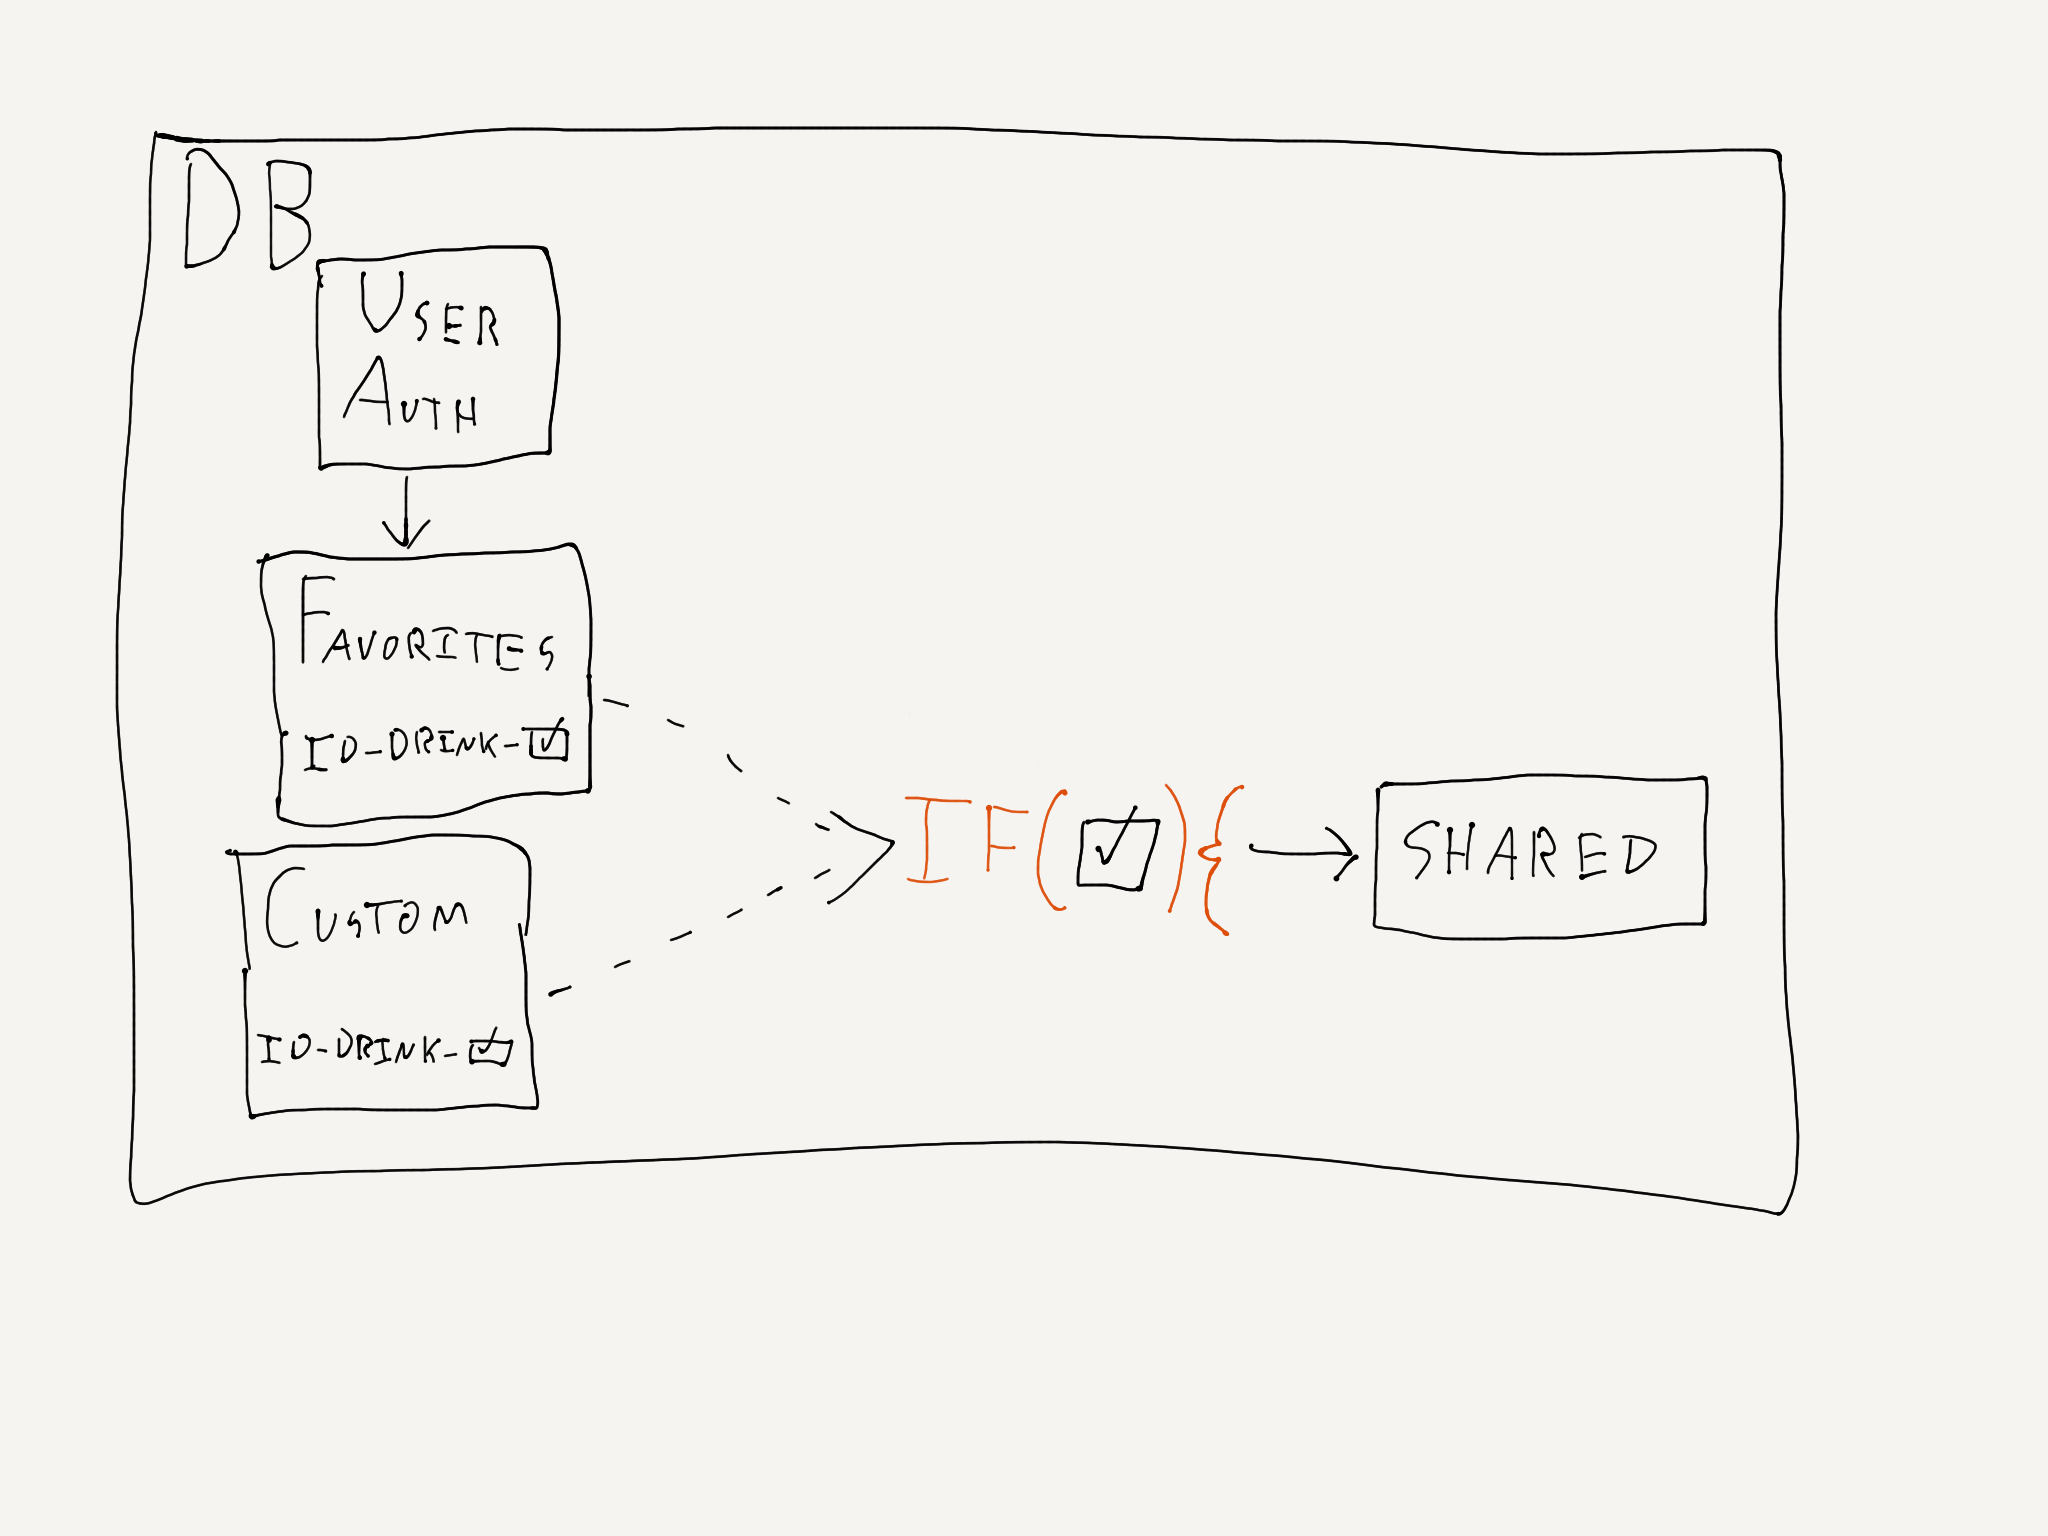 DB
USER
AUTH
FAVORITES
ID-DRINK-☑
CUSTOM
ID-DRINK-☑
IF(☑){
SHARED